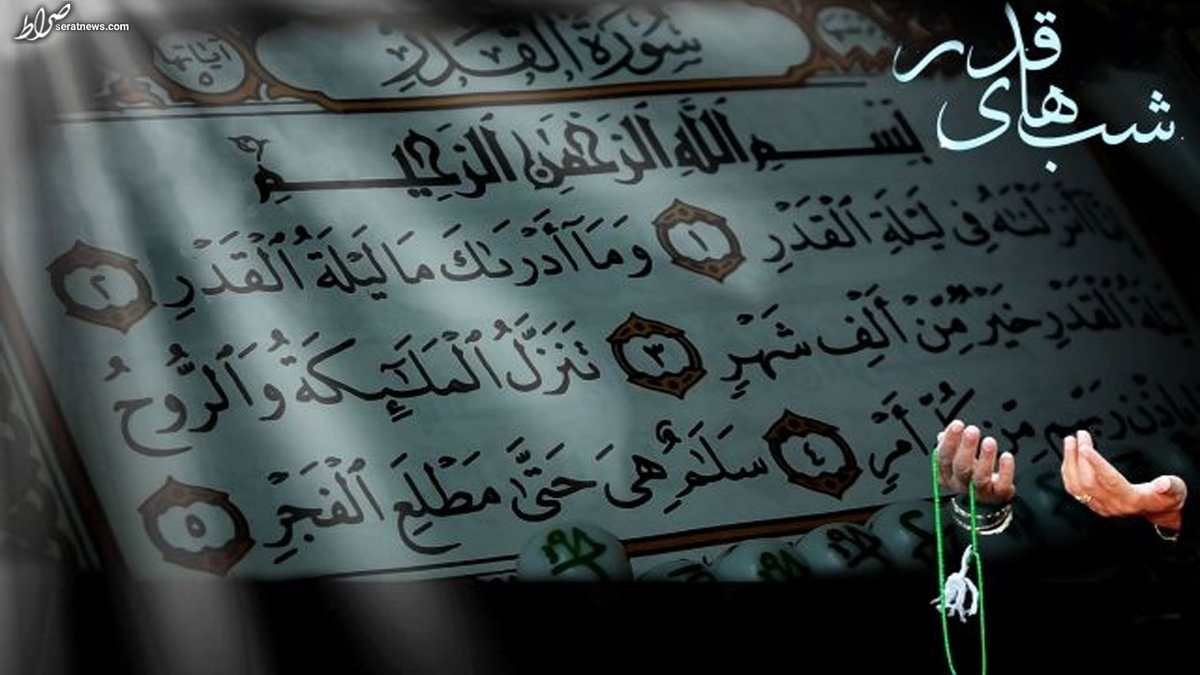 صراط
seratnews.com
شب‌های قدر
سُورَةُ القَدْرِ
آيَاتُهَا ٥
بِسْمِ ٱللَّهِ ٱلرَّحْمَٰنِ ٱلرَّحِيمِ
إِنَّا أَنزَلْنَٰهُ فِى لَيْلَةِ ٱلْقَدْرِ ١ وَمَآ أَدْرَىٰكَ مَا لَيْلَةُ ٱلْقَدْرِ ٢
لَيْلَةُ ٱلْقَدْرِ خَيْرٌ مِّنْ أَلْفِ شَهْرٍ ٣ تَنَزَّلُ ٱلْمَلَٰٓئِكَةُ وَٱلرُّوحُ
بِإِذْنِ رَبِّهِم مِّن كُلِّ أَمْرٍ ٤ سَلَٰمٌ هِىَ حَتَّىٰ مَطْلَعِ ٱلْفَجْرِ ٥